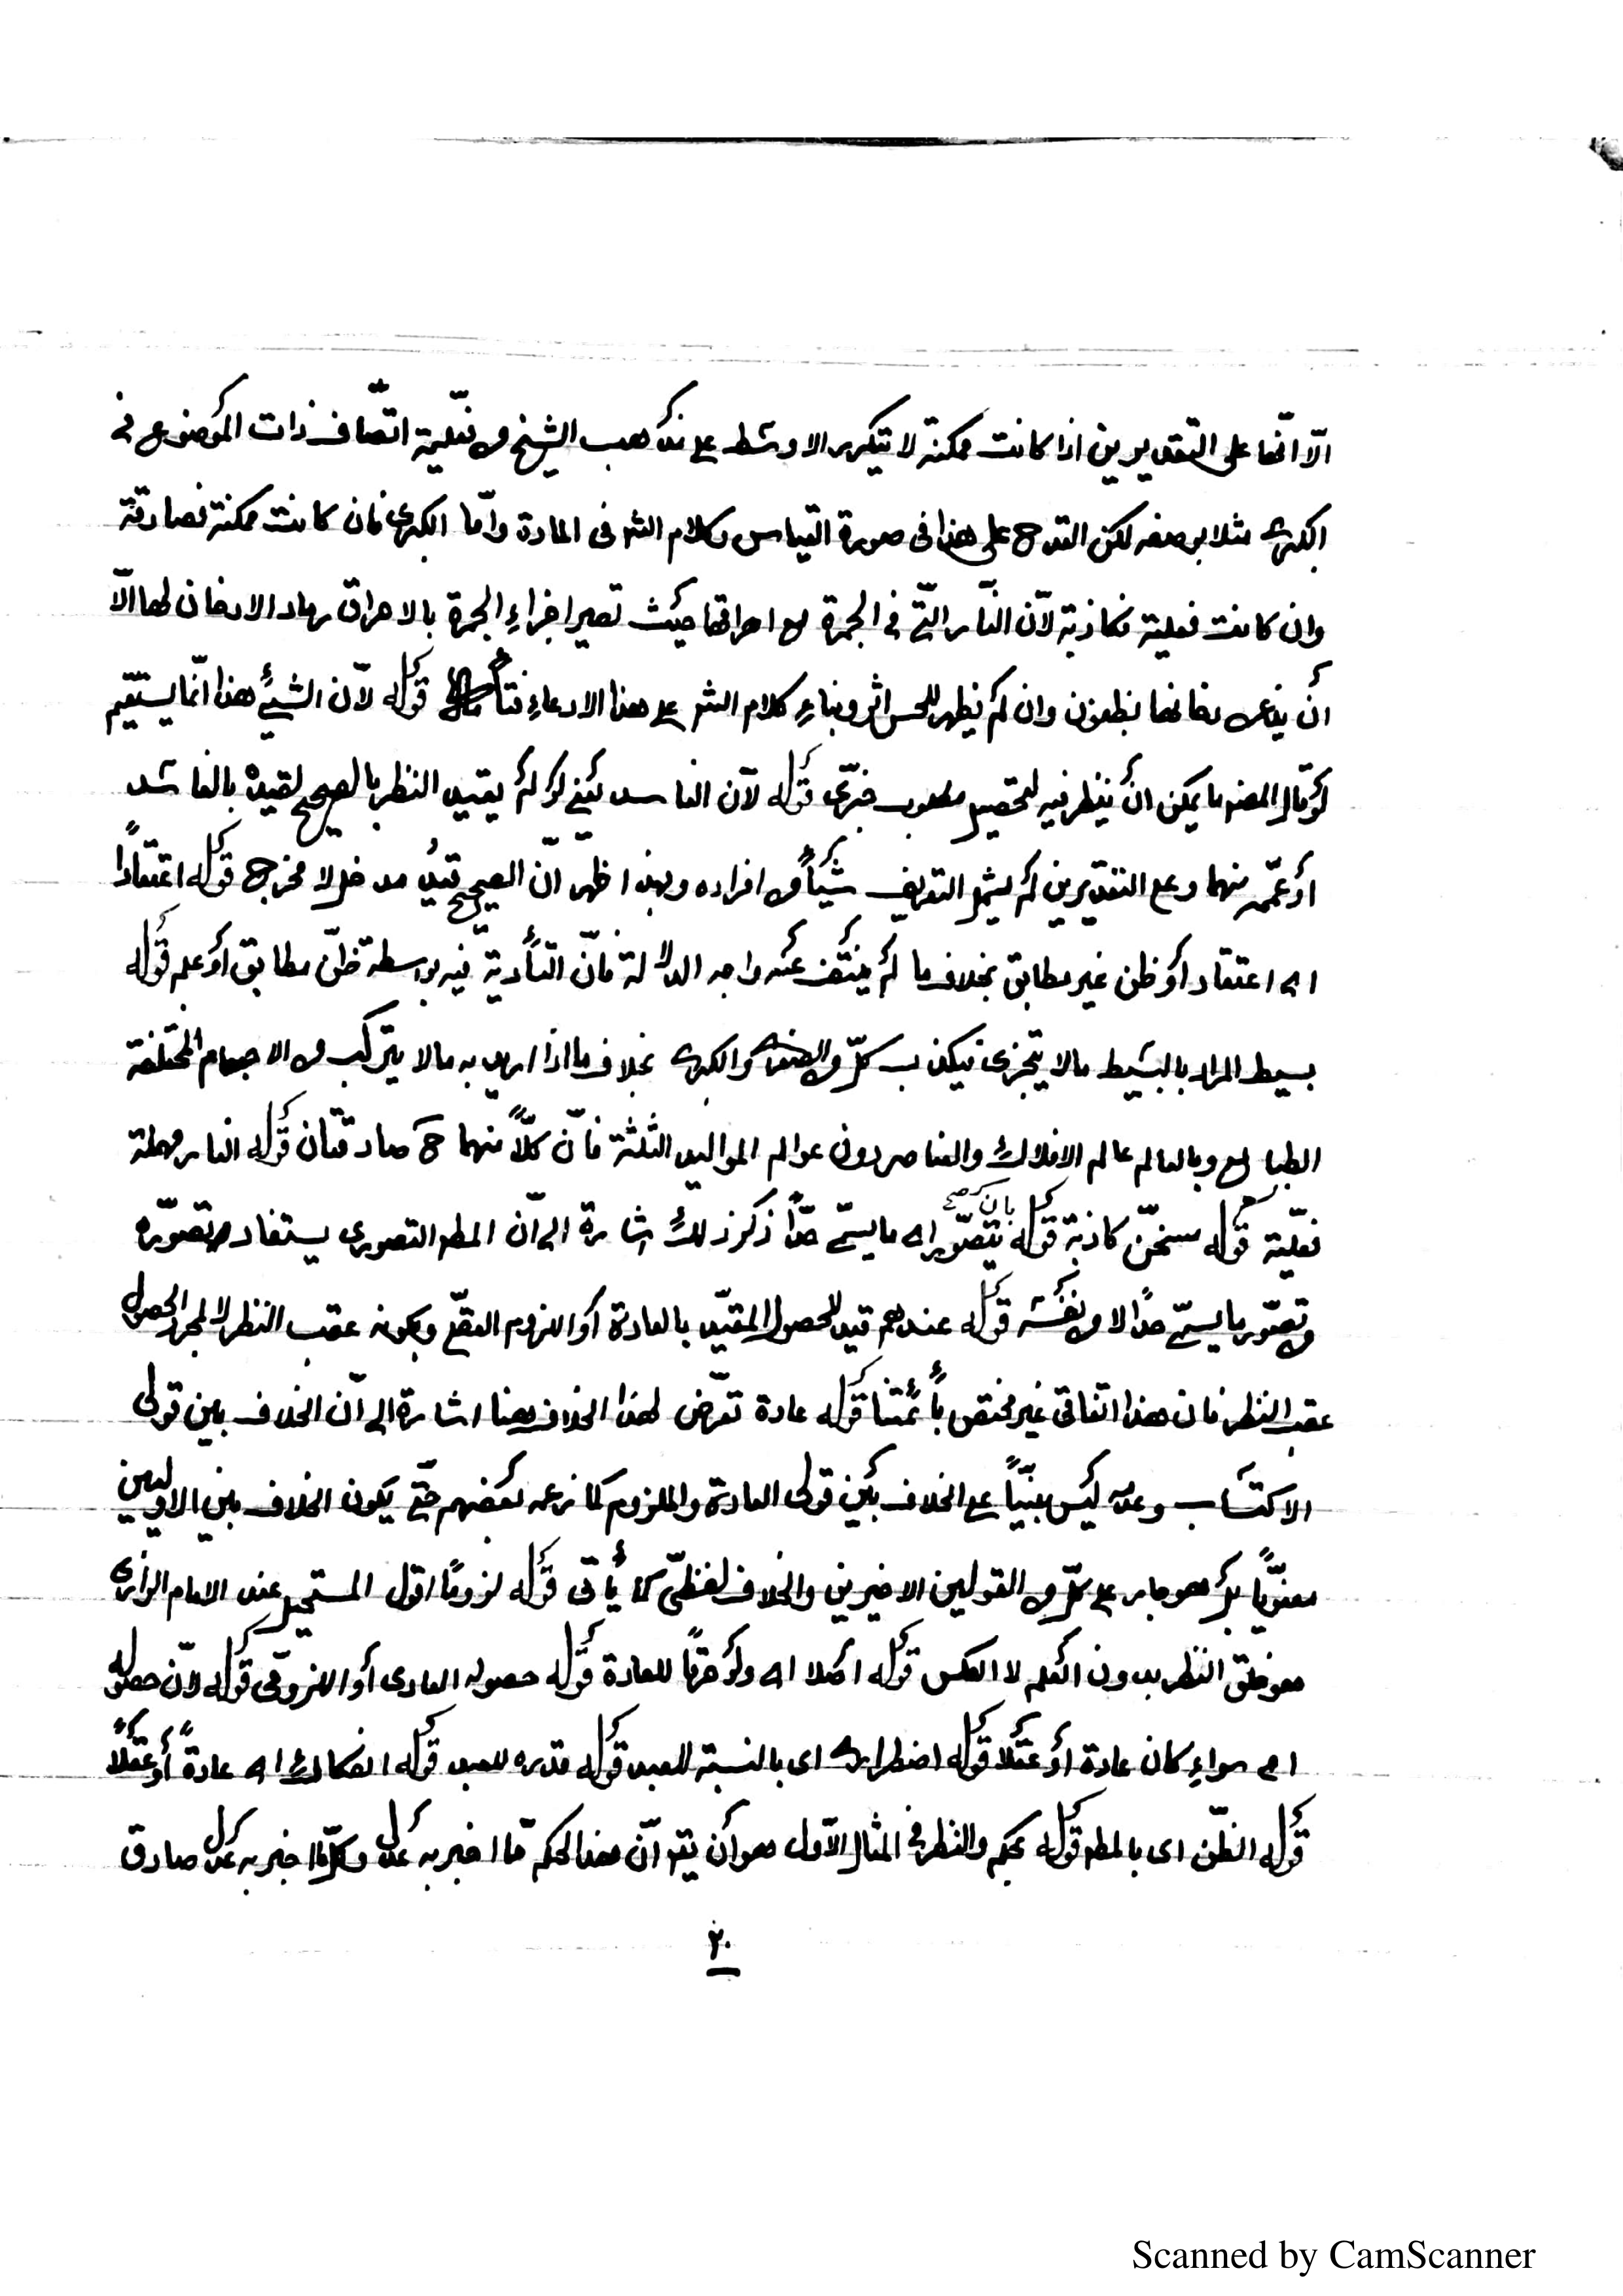 الّا انّها على التّقديرين اذا كانت ممكنة لا يتكرر الاوسط على مذهب الشيخ من فعلية اتّصاف ذات الموضوع في
الكبرى مثلا بوصفه لكن القدح على هذا فى صورة القياس وكلام الشر فى المادة وامّا الكبرى فان كانت ممكنة فصادقة
وان كانت فعلية فكاذبة لانّ النّار الّتي في الجمرة مع احراقها حيث تصير اجزاء الجمرة بالاحراق رماد الادخان لها الّا
أن يدعى دخانها بطعون وان لم يظهر للحس اثر وبناء كلام الشر على هذا الادعاء فتأمل قوله لانّ الشيئ هذا انّما يستقيم
لو قال المصنف ما يمكن أن ينظر فيه لتحصيل مطلوب خبرّى قوله لانّ الفاسد يعني لو لم يقيد النظر بالصحيح لقيده بالفاسد
أو عمّم منهما وعلى التقديرين لم يشمل التعريف شيئاً من افراده وبهذا ظهر انّ الصحيح قيد مدخل لا مخرج قوله اعتقاداً
اى اعتقاد أو ظن غير مطابق بخلاف ما لم ينتف عنه واجه الدلالة فانّ التأدية فيه بواسطة ظنّ مطابق أو علم قوله
بسيط المراد بالبسيط مالا يتجزى فيكذب كلّ من الصغرى والكبرى بخلاف ما اذا اريد به مالا يتركب من الاجسام المختلفة
الطبايع وبالعالم عالم الافلاك والعناصر دون عوالم المواليد الثلثة فانّ كلّاً منهما ح صادقتان قوله النار مهملة
فعليّة قوله مسخنّ كاذبة قوله بان يتصوّر اى ما يسمّى حدّاً ذكر ذلك اشارة الى انّ المطـ التصورى يستفاد من تصوّره
من تصوّر ما يسمّى حدّاً لا من نفسه قوله عندهم قيد للحصول المقيّد بالعادة أو اللزوم العقلّي وبكونه عقب النظر لا لمجرد الحصول
عقب النظر فان هذا اتفاقى غير مختص بأئمّتنا قوله عادة تعرّض لهذا الخلاف هنا اشارة الى انّ الخلاف بين قولى
الاكتساب وعدمه ليس مبنيّاً على الخلاف بين قولى العادة واللزوم كما زعمه بعضهم حتّى يكون الخلاف بين الاوليين
معنويّاً بل هو جار على كلّ من القولين الاخيرين والخلاف لفظىّ كما يأتى قوله لزومًا اقول المستحيل عند الامام الرازى
هو خلق النظر بدون العلم لا العكس قوله اصلا اى ولو خرقًا للعادة قوله حصوله العادى أو اللزومى قوله لانّ حصوله
اى سواء كان عادة أو عقلا قوله اضطرارى اى بالنسبة للعبد قوله قدره للعبد قوله انفكاك اى عادةً أو عقلاً
قوله الظنّ اى بالمطـ قوله بحكم والنظر في المثال الاول هو أن يقـ انّ هذا الحكم ممّا اخبر به عدل وكلّ ما اخبر به عدل صادق
٢٠
Scanned by CamScanner